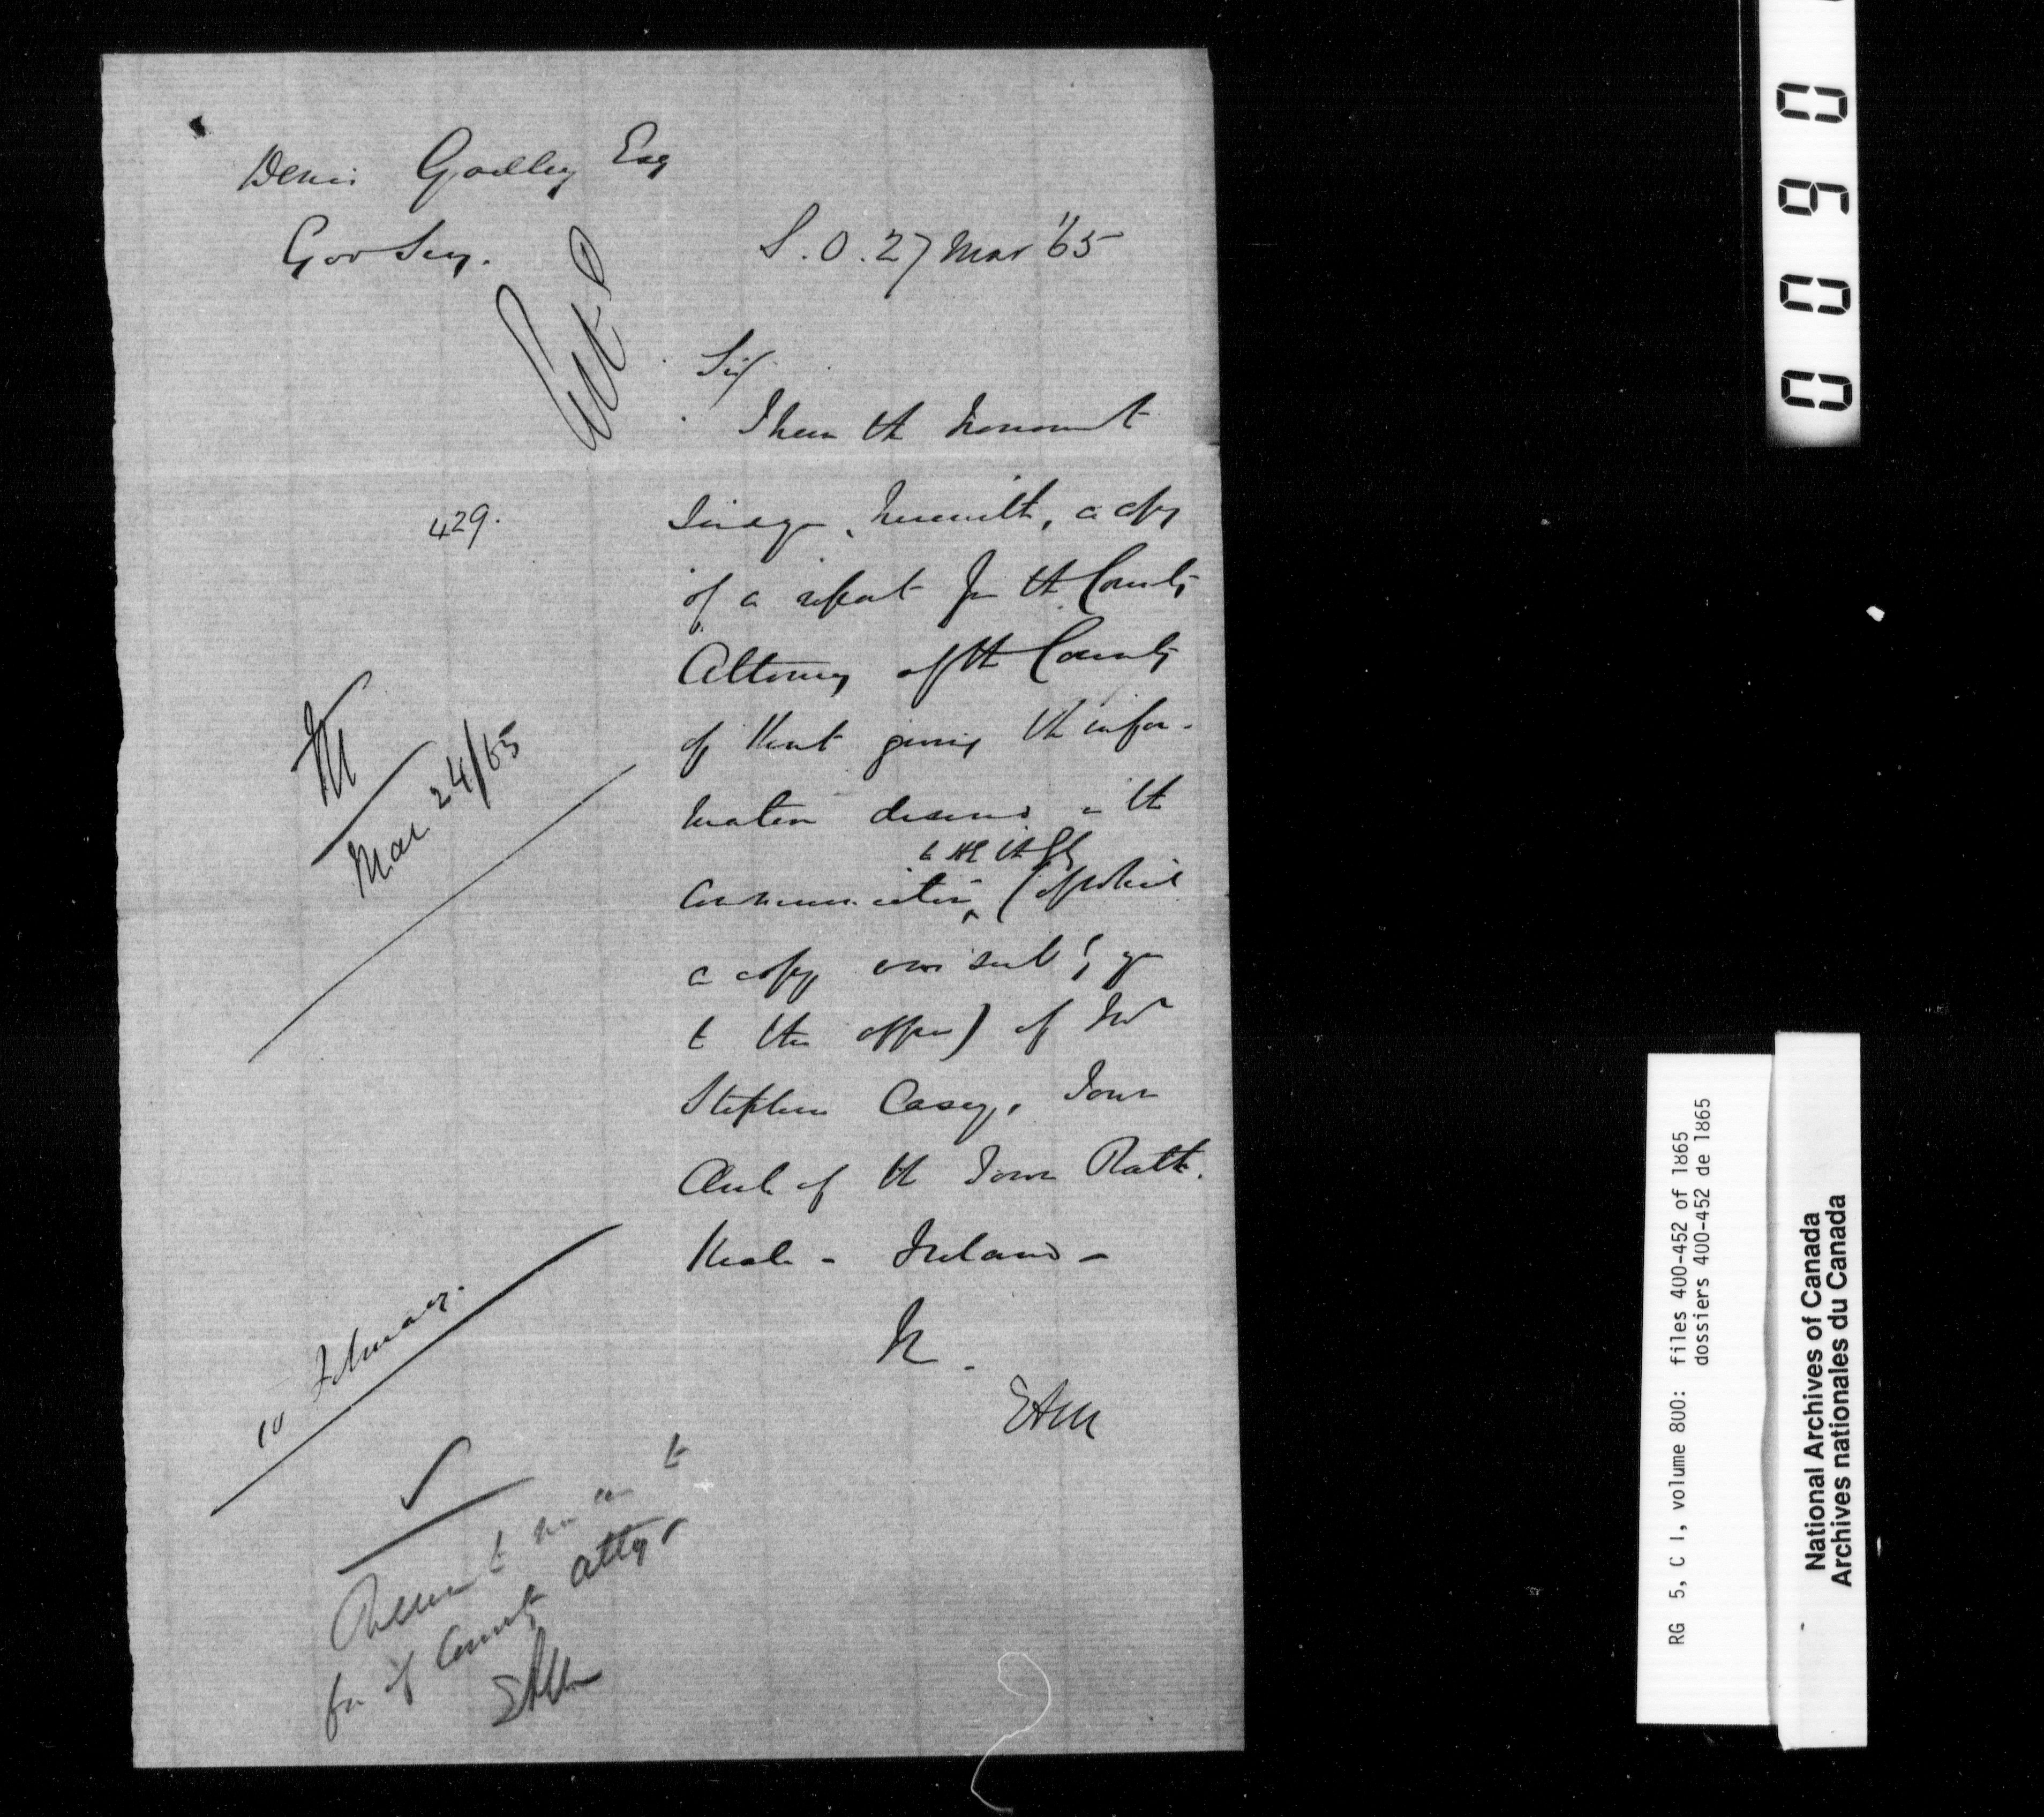 Denis Godley Esq
Gov Secy.
S.O. 27 Mar '65
Entd
Sir/
I have the honour to
429.
send you, herewith, a copy
of a report fm the County
Attorney of the County
of Kent giving the infor-
mation desired in the
to the
communication (of which
a copy was sent by you
to this office) of Mr
Stephen Casey, Town
Clerk of the Town Rath-
Keale - Ireland -
Mar 24/65
10 February.
EAM
to
for of County Atty
EAM
0090
RG 5, C 1, volume 800: files 400-452 of 1865
dossiers 400-452 de 1865
National Archives of Canada
Archives nationales du Canada